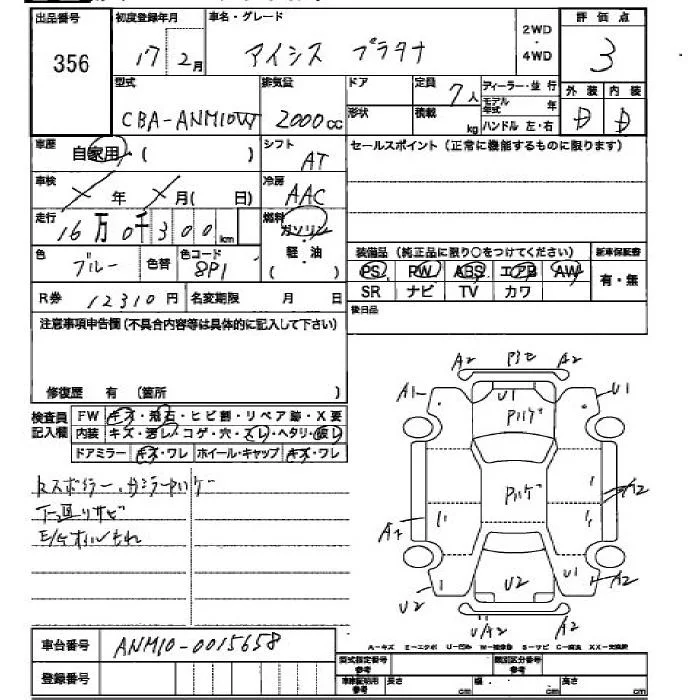 出品番号 初度登録年月 車名・グレード 2WD・4WD 評価点
356 17 2月 アイシス プラタナ 3
型式 排気量 ドア 定員 7人 ディーラー・並行 外装 内装
CBA-ANM10W 2000cc 形状 積載 kg モデル年式 年 D D
ハンドル 左・右
車歴 自家用・( ) シフト AT セールスポイント(正常に機能するものに限ります)
車検 × 年 × 月( 日) 冷房 AAC
走行 16万0千300km 燃料 ガソリン・軽・油( )
色 ブルー 色替 色コード 8P1 装備品(純正品に限り○をつけてください) 新車保証書
PS PW ABS エアB AW 有・無
R券 12310円 名変期限 月 日 SR ナビ TV カワ
後日品
注意事項申告欄(不具合内容等は具体的に記入して下さい)
修復歴 有 (箇所 )
検査員記入欄 FW キズ・飛石・ヒビ割・リペア跡・X要
内装 キズ・汚レ・コゲ・穴・スレ・ヘタリ・破レ
ドアミラー キズ・ワレ ホイール・キャップ キズ・ワレ
下廻りサビ
E/Gオイルもれ
A2 A2
A1 U1 U1
A2
A2
U2 U2 U1 A2
U A2
A-キズ E-エクボ U-凹み S-サビ C-腐食
車台番号 ANM10-0015658
型式指定番号 参考 類別区分番号 参考
登録番号 参考 長さ cm 幅 cm 高さ cm